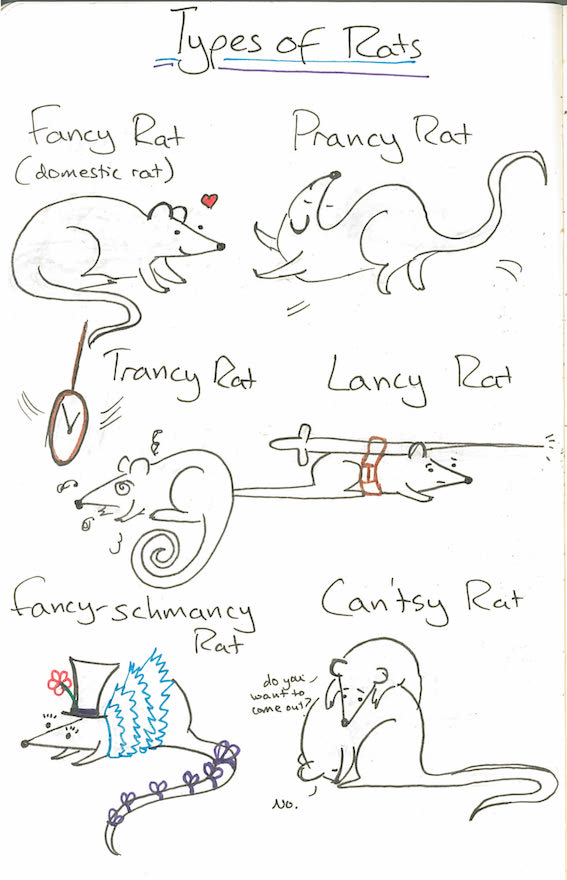 Types of Rats
Fancy Rat
(domestic rat)
Prancy Rat
Trancy Rat
Lancy Rat
Fancy-schmancy
Rat
Can'tsy Rat
do you
want to
come out?
No.